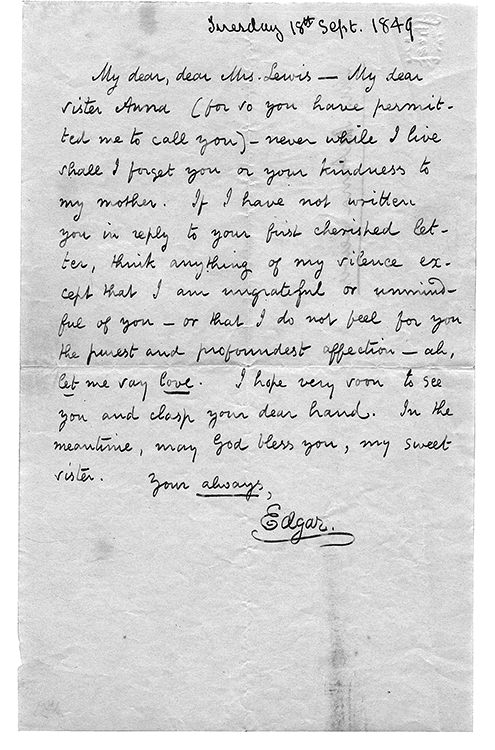 Tuesday 18th Sept. 1849
My dear, dear Mrs. Lewis — My dear
sister Anna (for so you have permit-
ted me to call you) — never while I live
shall I forget you or your kindness to
my mother. If I have not written
you in reply to your first cherished let-
ter, think anything of my silence ex-
cept that I am ungrateful or unmind-
ful of you — or that I do not feel for you
the purest and profoundest affection — ah,
let me say love. I hope very soon to see
you and clasp your dear hand. In the
meantime, may God bless you, my sweet
sister.
Your always,
Edgar.